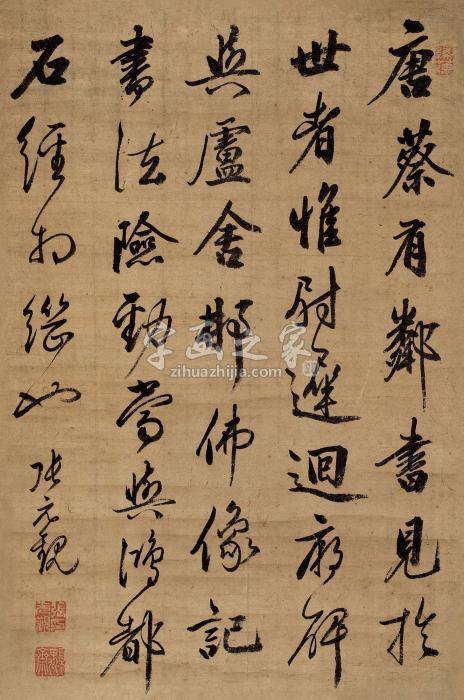 唐蔡有鄰書見扵
世者惟尉遲迴廟碑
與盧舍那佛像記
書法險勁當與鴻都
石經相繼也
張元
字画之家
zihuazhijia.com